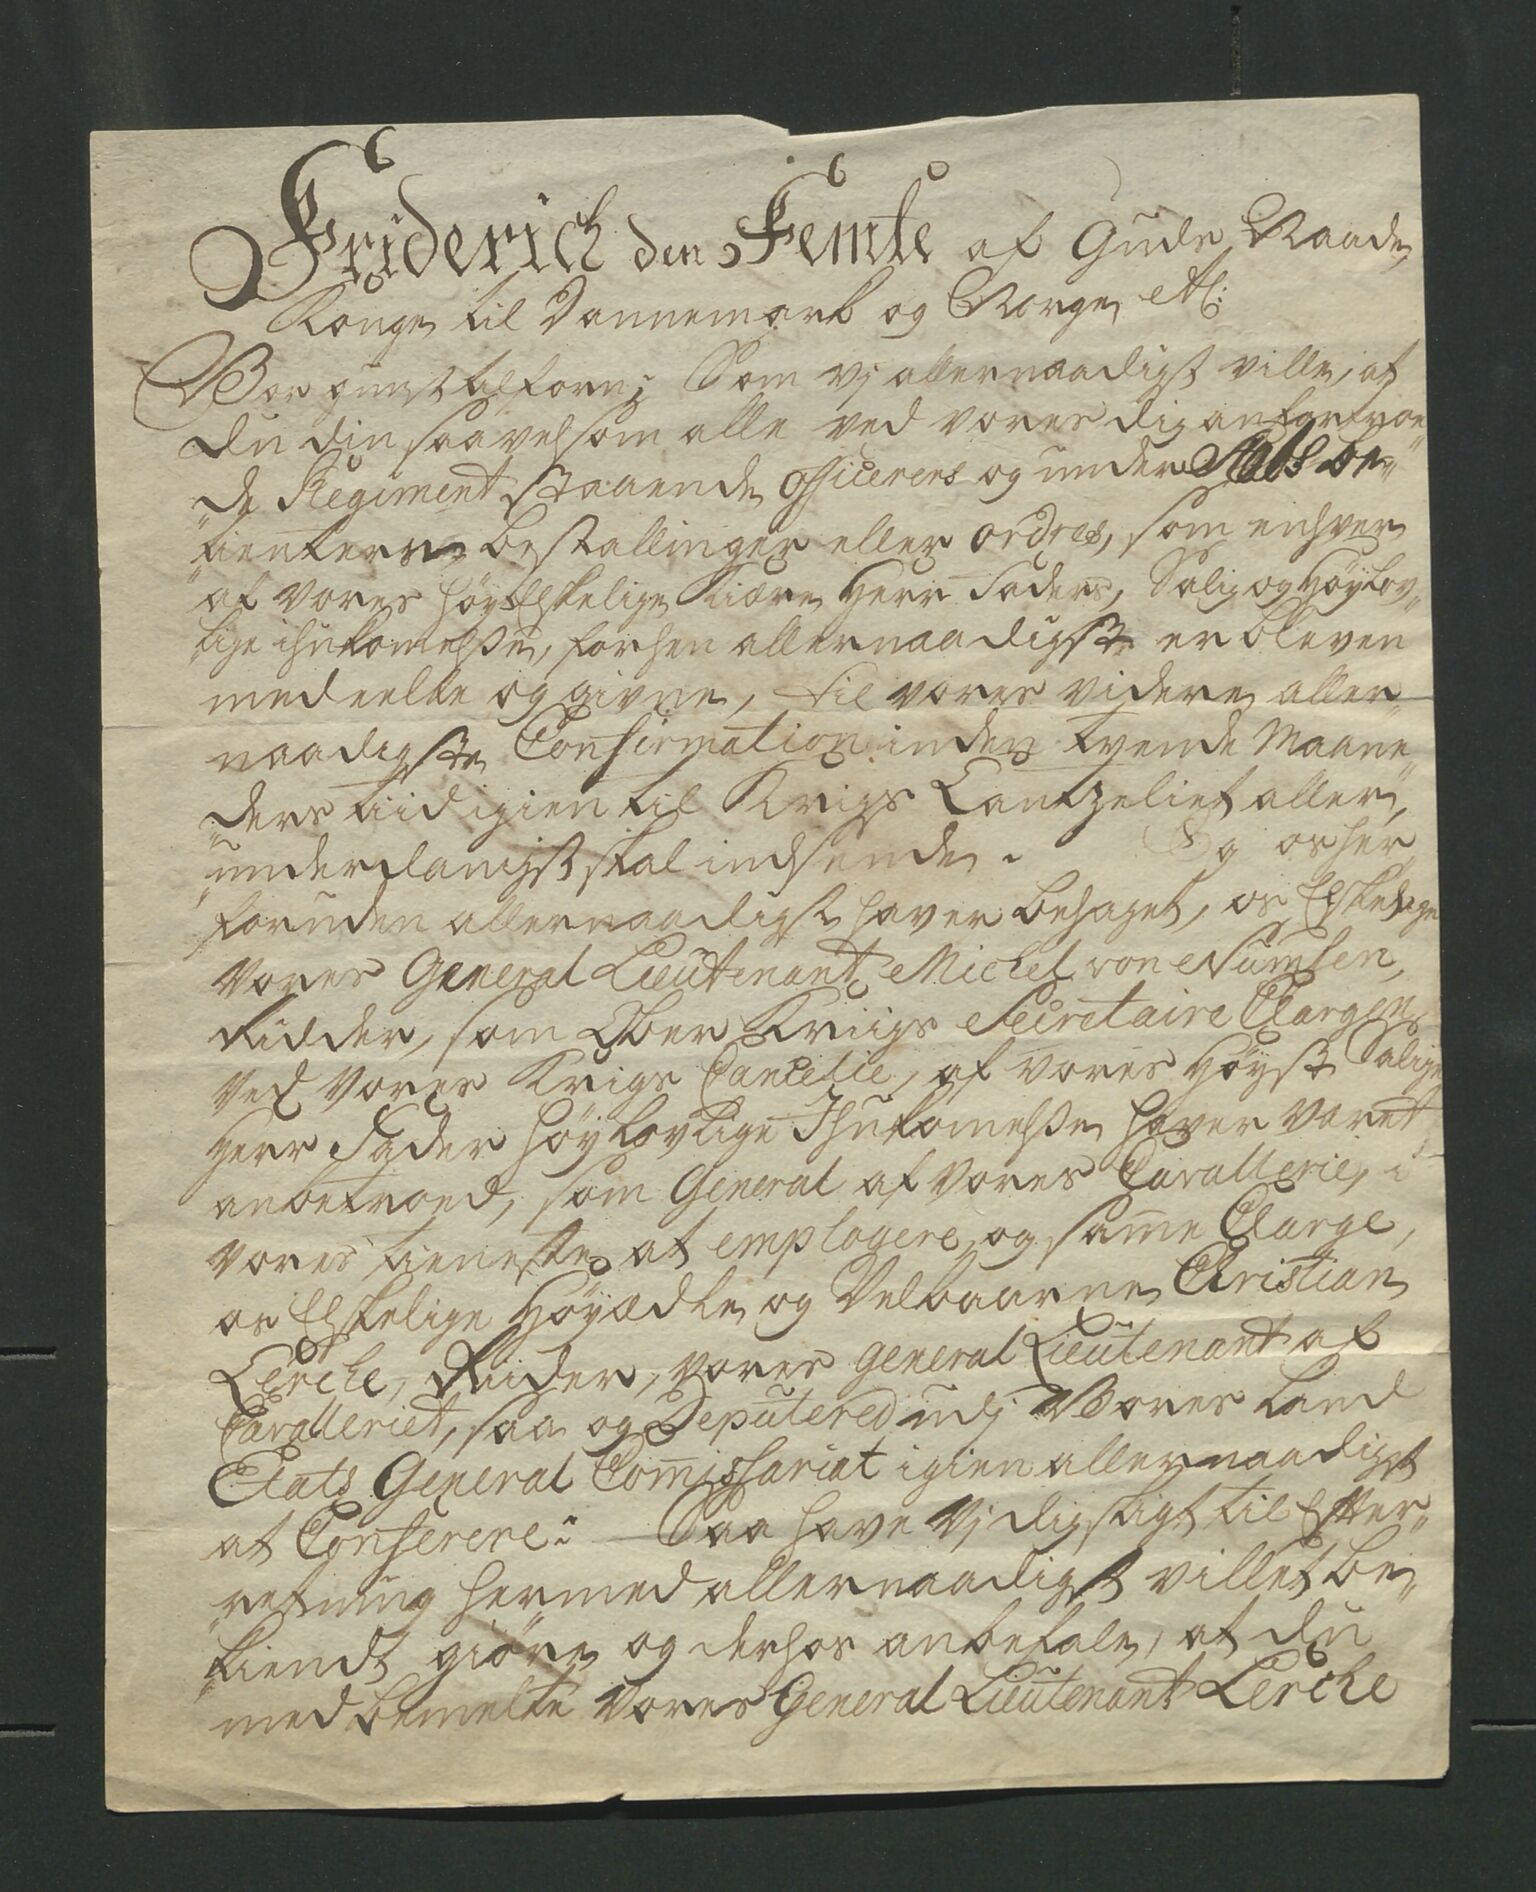 Friderich den Femte af Guds Naade,
Konge til Dannemark og Norge, etc:
Vor gunst tilforn; Som vj allernaadigst ville, at
du din saavelsom alle ved vores dig anfortroe„
„de Regiment staaende Officerers og under Stabs be„
„tienters bestallinger eller ordres, som enhver
af vores höyElskelige kiere Herr Faders, Salig og Höylov„
„lige ihukommelse, forhen allernaadigst er bleven
meddeelte og givne, til vores videre aller„
naadigste Confirmation inden tvende Maane„
„ders tiid igien til Krigs Cantzeliet aller„
„underdanigst skal indsende. Og os her„
„foruden allernaadigst haver behaget, os Elskelige
Vores General Lieutenant Michel von Numsen,
Ridder, som Ober Kriigs Secretaire Chargen
ved Vores Krigs Cancelie, af vores Höyst Salige
Herr Fader höylovlige Ihukommelse haver været
anbetroed, som General af vores Cavallerie, i
vores tieneste at employere, og same Charge,
os Elskelige Höyædle og Velbaarne Christian
Lerche, Ridder, vores General Lieutenant af
Cavalleriet, saa og Deputered udj Vores Land
Etats General Comissariat igien allernaadigst
at Conferere: Saa have Vj dig sligt til Efter„
„retning hermed allernaadigst villet be„
„kiendt giöre, og derhos anbefale, at du
med bemelte Vores General Lieutenant Lerche